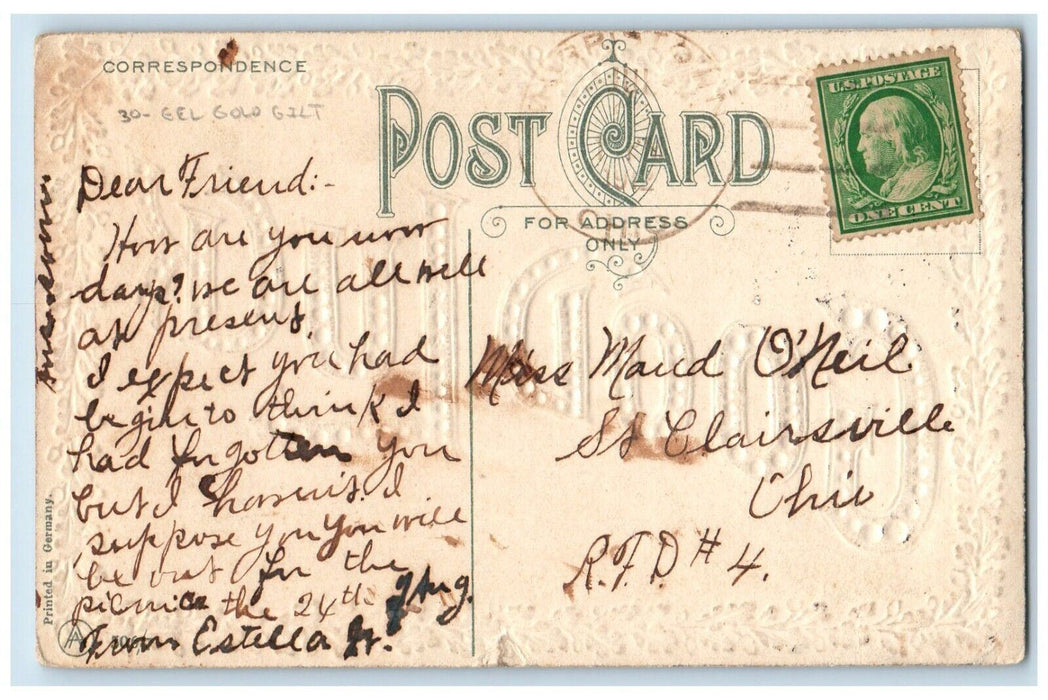 CORRESPONDENCE
30- GEL GOLD GILT
POST CARD
FOR ADDRESS
ONLY
U.S. POSTAGE
ONE CENT
Dear Friend:-
How are you now
days? we are all well
at present.
I expect you had
begin to think I
had forgotten you
but I havein't. I
suppose you you will
be out for the
picnic the 24th of Aug.
From Estella H.
Miss Maud O'Neil
St Clairsville
Ohio
R.F.D # 4.
Printed in Germany.